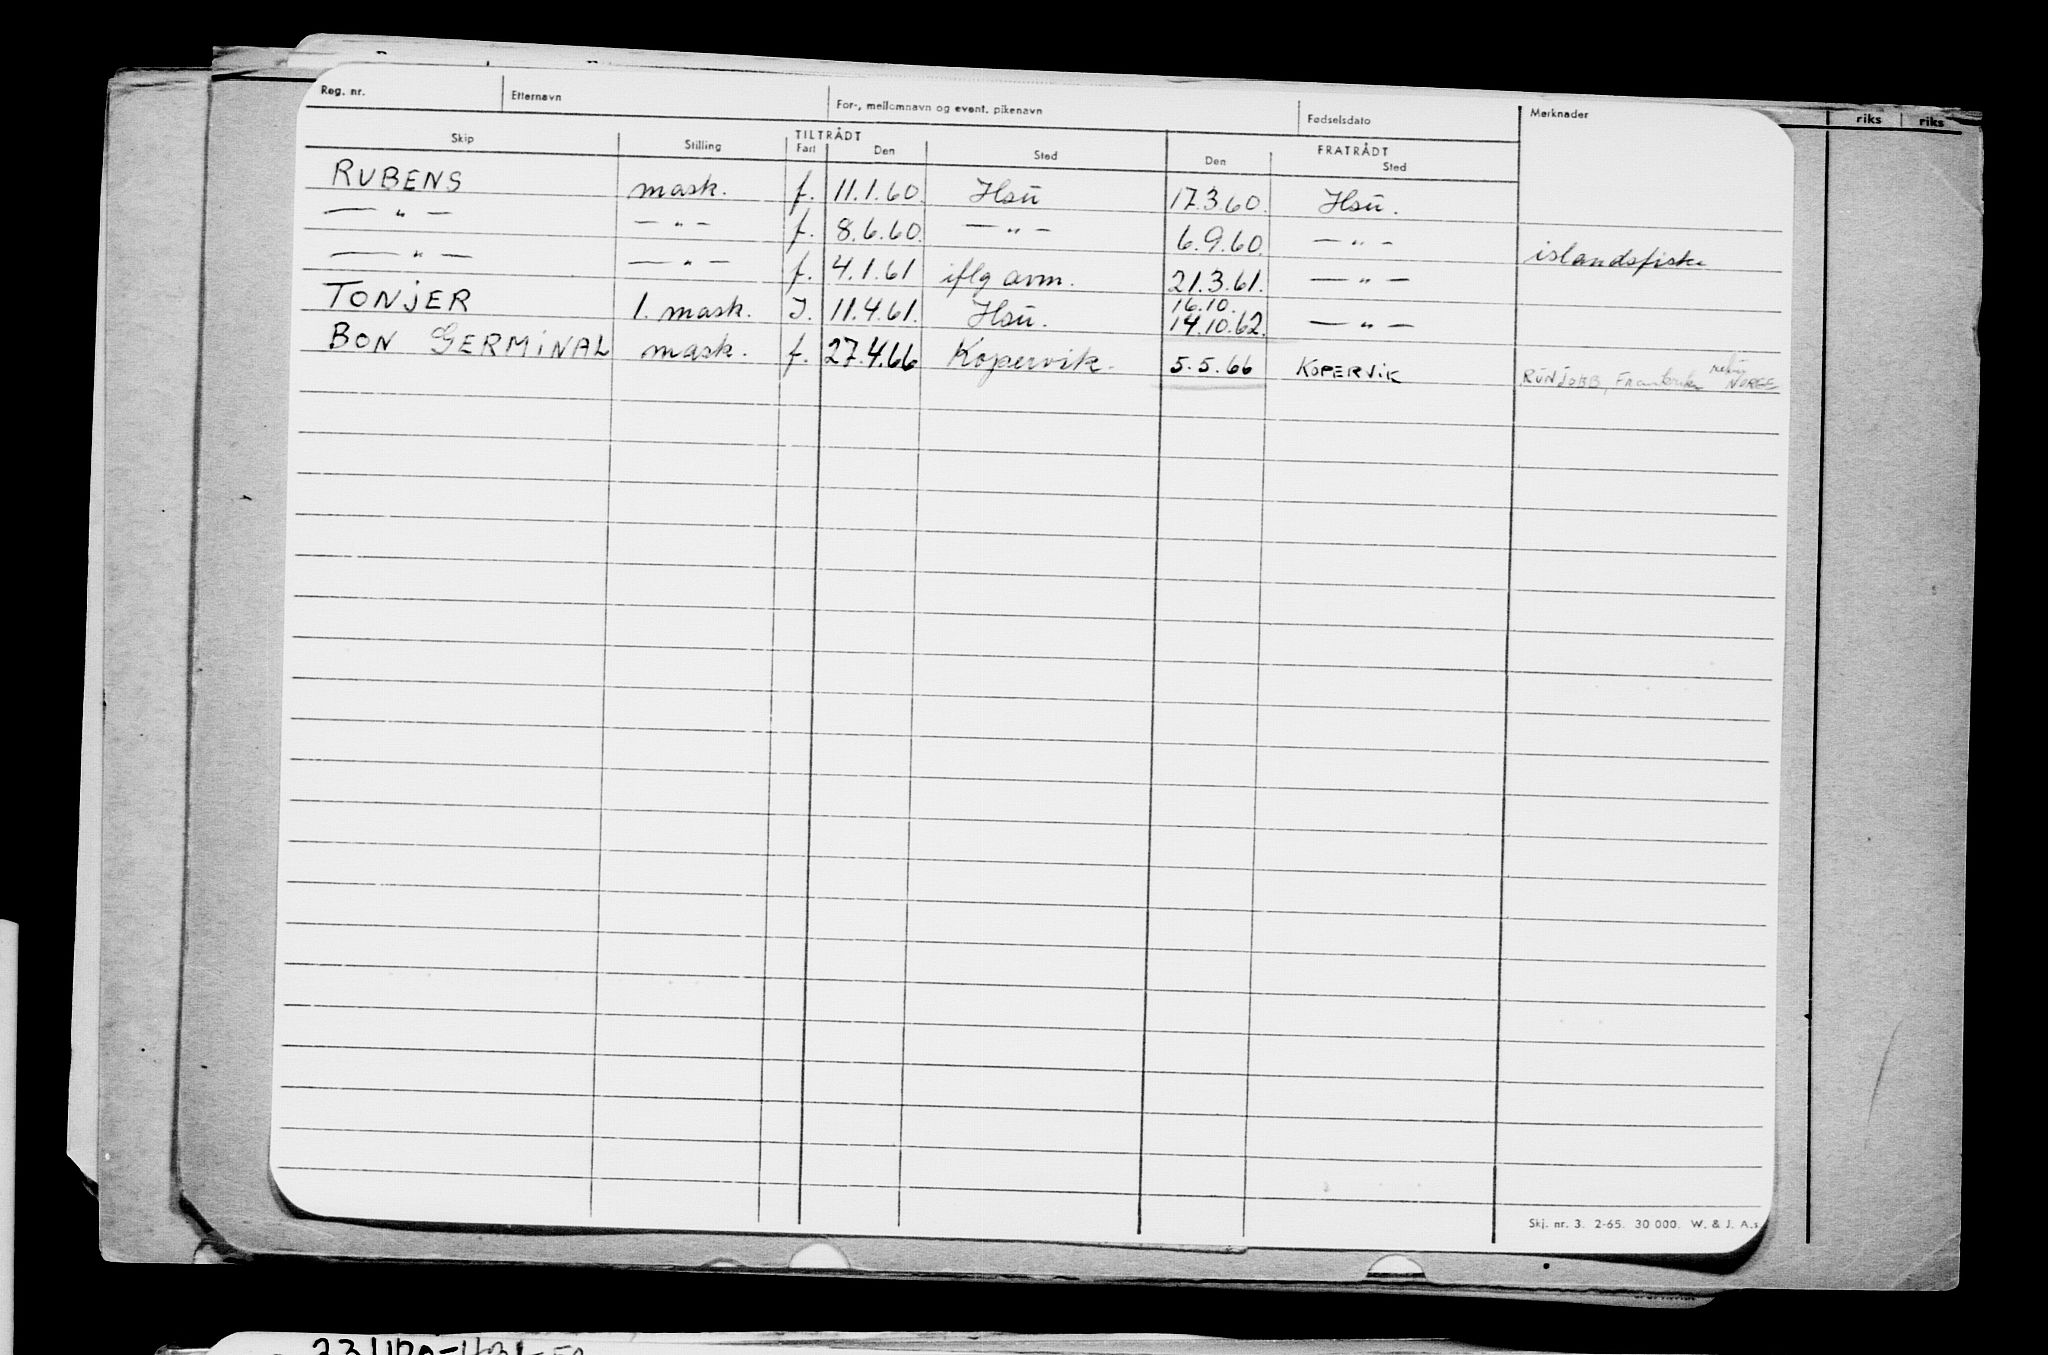 Reg. nr. Etternavn For-, mellomnavn og event. pikenavn Fødselsdato Merknader riks riks
TILTRÅDT FRATRÅDT
Skip Stilling Fart Den Sted Den Sted
RUBENS mask. f. 11.1.60. Hsu 17.3.60. Hsu.
— " — — " — f. 8.6.60. — " — 6.9.60. — " — islandsfiske
— " — — " — f. 4.1.61 iflg avm. 21.3.61. — " —
TONJER 1. mask. I. 11.4.61. Hsu. 16.10. 14.10.62. — " —
BON GERMINAL mask. f. 27.4.66 Kopervik. 5.5.66 KOPERVIK Frankrike NORGE
Skj. nr. 3. 2-65. 30 000. W. & J. A.s